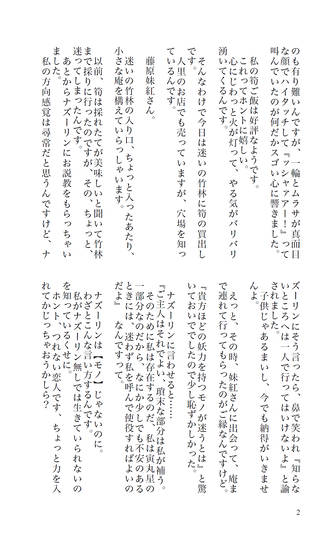 のも有り難いんですが、一輪とムラサが真面目
な顔でハイタッチして『ッシャアー！』って
叫んでいたのが何だかスゴい心に響きました。
私の筍ご飯は好評なようです。
これってホントに嬉しい。
心にじわっと火が灯って、やる気がバリバリ
湧いてくるんです。
そんなわけで今日は迷いの竹林に筍の買出し
です。
人里のお店でも売っていますが、穴場を知っ
てるんです。
藤原妹紅さん。
迷いの竹林の入り口、ちょっと入ったあたり、
小さな庵を構えていらっしゃいます。
以前、筍は採れたてが美味しいと聞いて竹林
まで採りに行ったのですが、その、ちょっと、
迷ってしまったんです。
あとからナズーリンにお説教をもらっちゃい
ました。
私の方向感覚は尋常だと思うんですけど、ナ
ズーリンにそう言ったら、鼻で笑われ『知らな
いところへは一人で行ってはいけないよ』と諭
されました。
子供じゃあるまいし、今でも納得がいきませ
んよ。
えっと、その時、妹紅さんに出会って、庵ま
で連れて行ってもらったのがご縁なんですけど。
『貴方ほどの妖力を持つモノが迷うとは』と驚
いておいででしたので少し恥ずかしかった。
ナズーリンに言わせると……
『ご主人はそれでよい、瑣末な部分は私が補う。
そのために私は存在するのだ、私は寅丸星の
一部分なのだから少しでも不安のある
ときには、迷わず私を呼んで使役すればよいの
だよ』なんですって。
ナズーリンは【モノ】じゃないのに。
わざとこんな言い方するんです。
私がナズーリン無しでは生きていられないの
を知っているくせに。
ホント、つれない恋人です、ちょっと力を入
れてかじっちゃおうかしら？
2